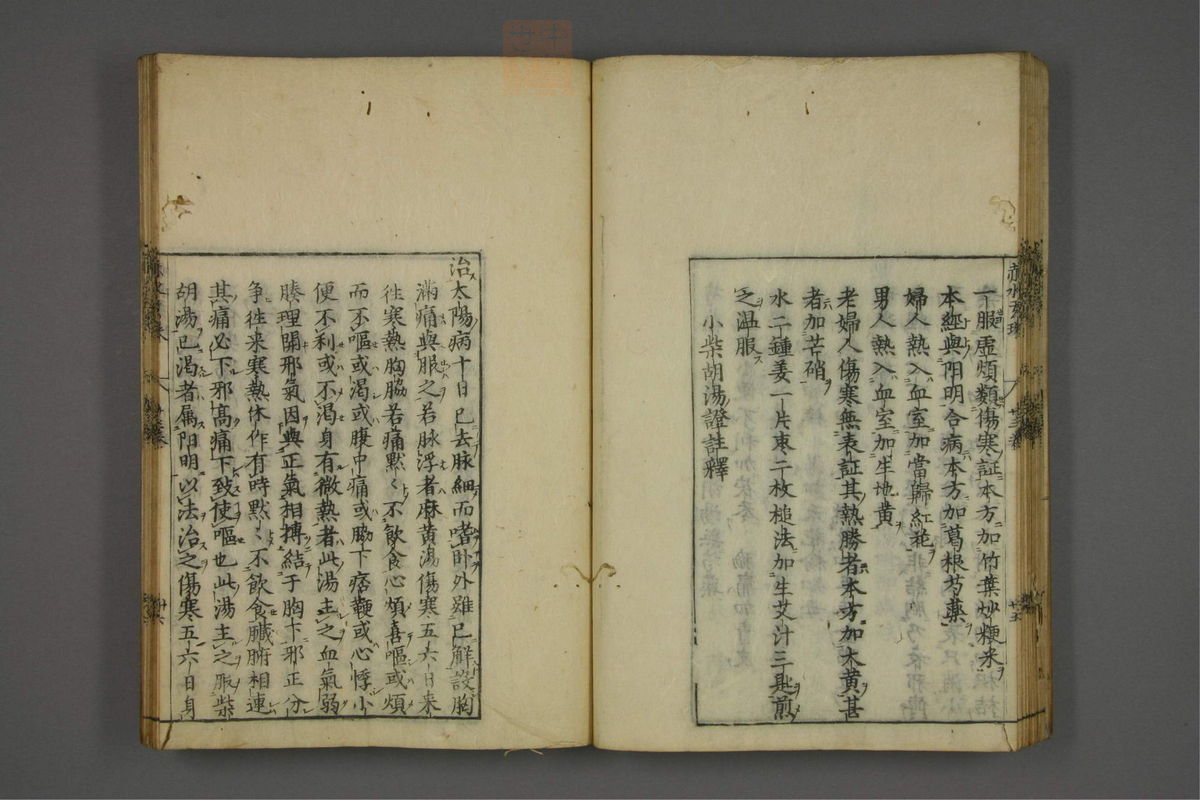 一服虚煩類傷寒証本方加竹葉炒粳米
本經與阳明合病本方加葛根芍藥
婦人熱入血室加當歸紅花
男人熱入血室加生地黄
老婦人傷寒無表証其熱勝者本方加大黄甚
者加芒硝
水二鍾姜一片枣二枚槌法加生艾汁三匙煎
之温服
小柴胡湯證註釋
治太陽病十日已去脉細而嗜卧外雖已解設胸
滿痛與服之若脉浮者麻黄湯傷寒五六日来
徃寒熱胸脇若痛黙〻不飲食心煩喜嘔或煩
而不嘔或渇或腹中痛或脇下痞鞕或心悸小
便不利或不渇身有微熱者此湯主之血氣弱
腠理開邪氣因與正氣相搏結于胸下邪正分
争徃来寒熱休作有時黙〻不飲食臓腑相連
其痛必下邪髙痛下致使嘔也此湯主之服柴
胡湯已渇者属阳明以法治之傷寒五六日身